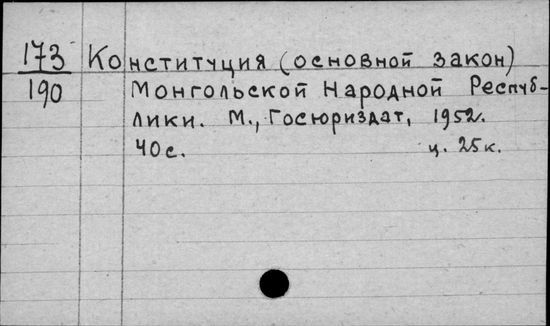 173 Конституция (основной закон)
190 Монгольской Народной Респуб-
лики. М., Госюриздат, 1952.
40 с. ц. 25 к.